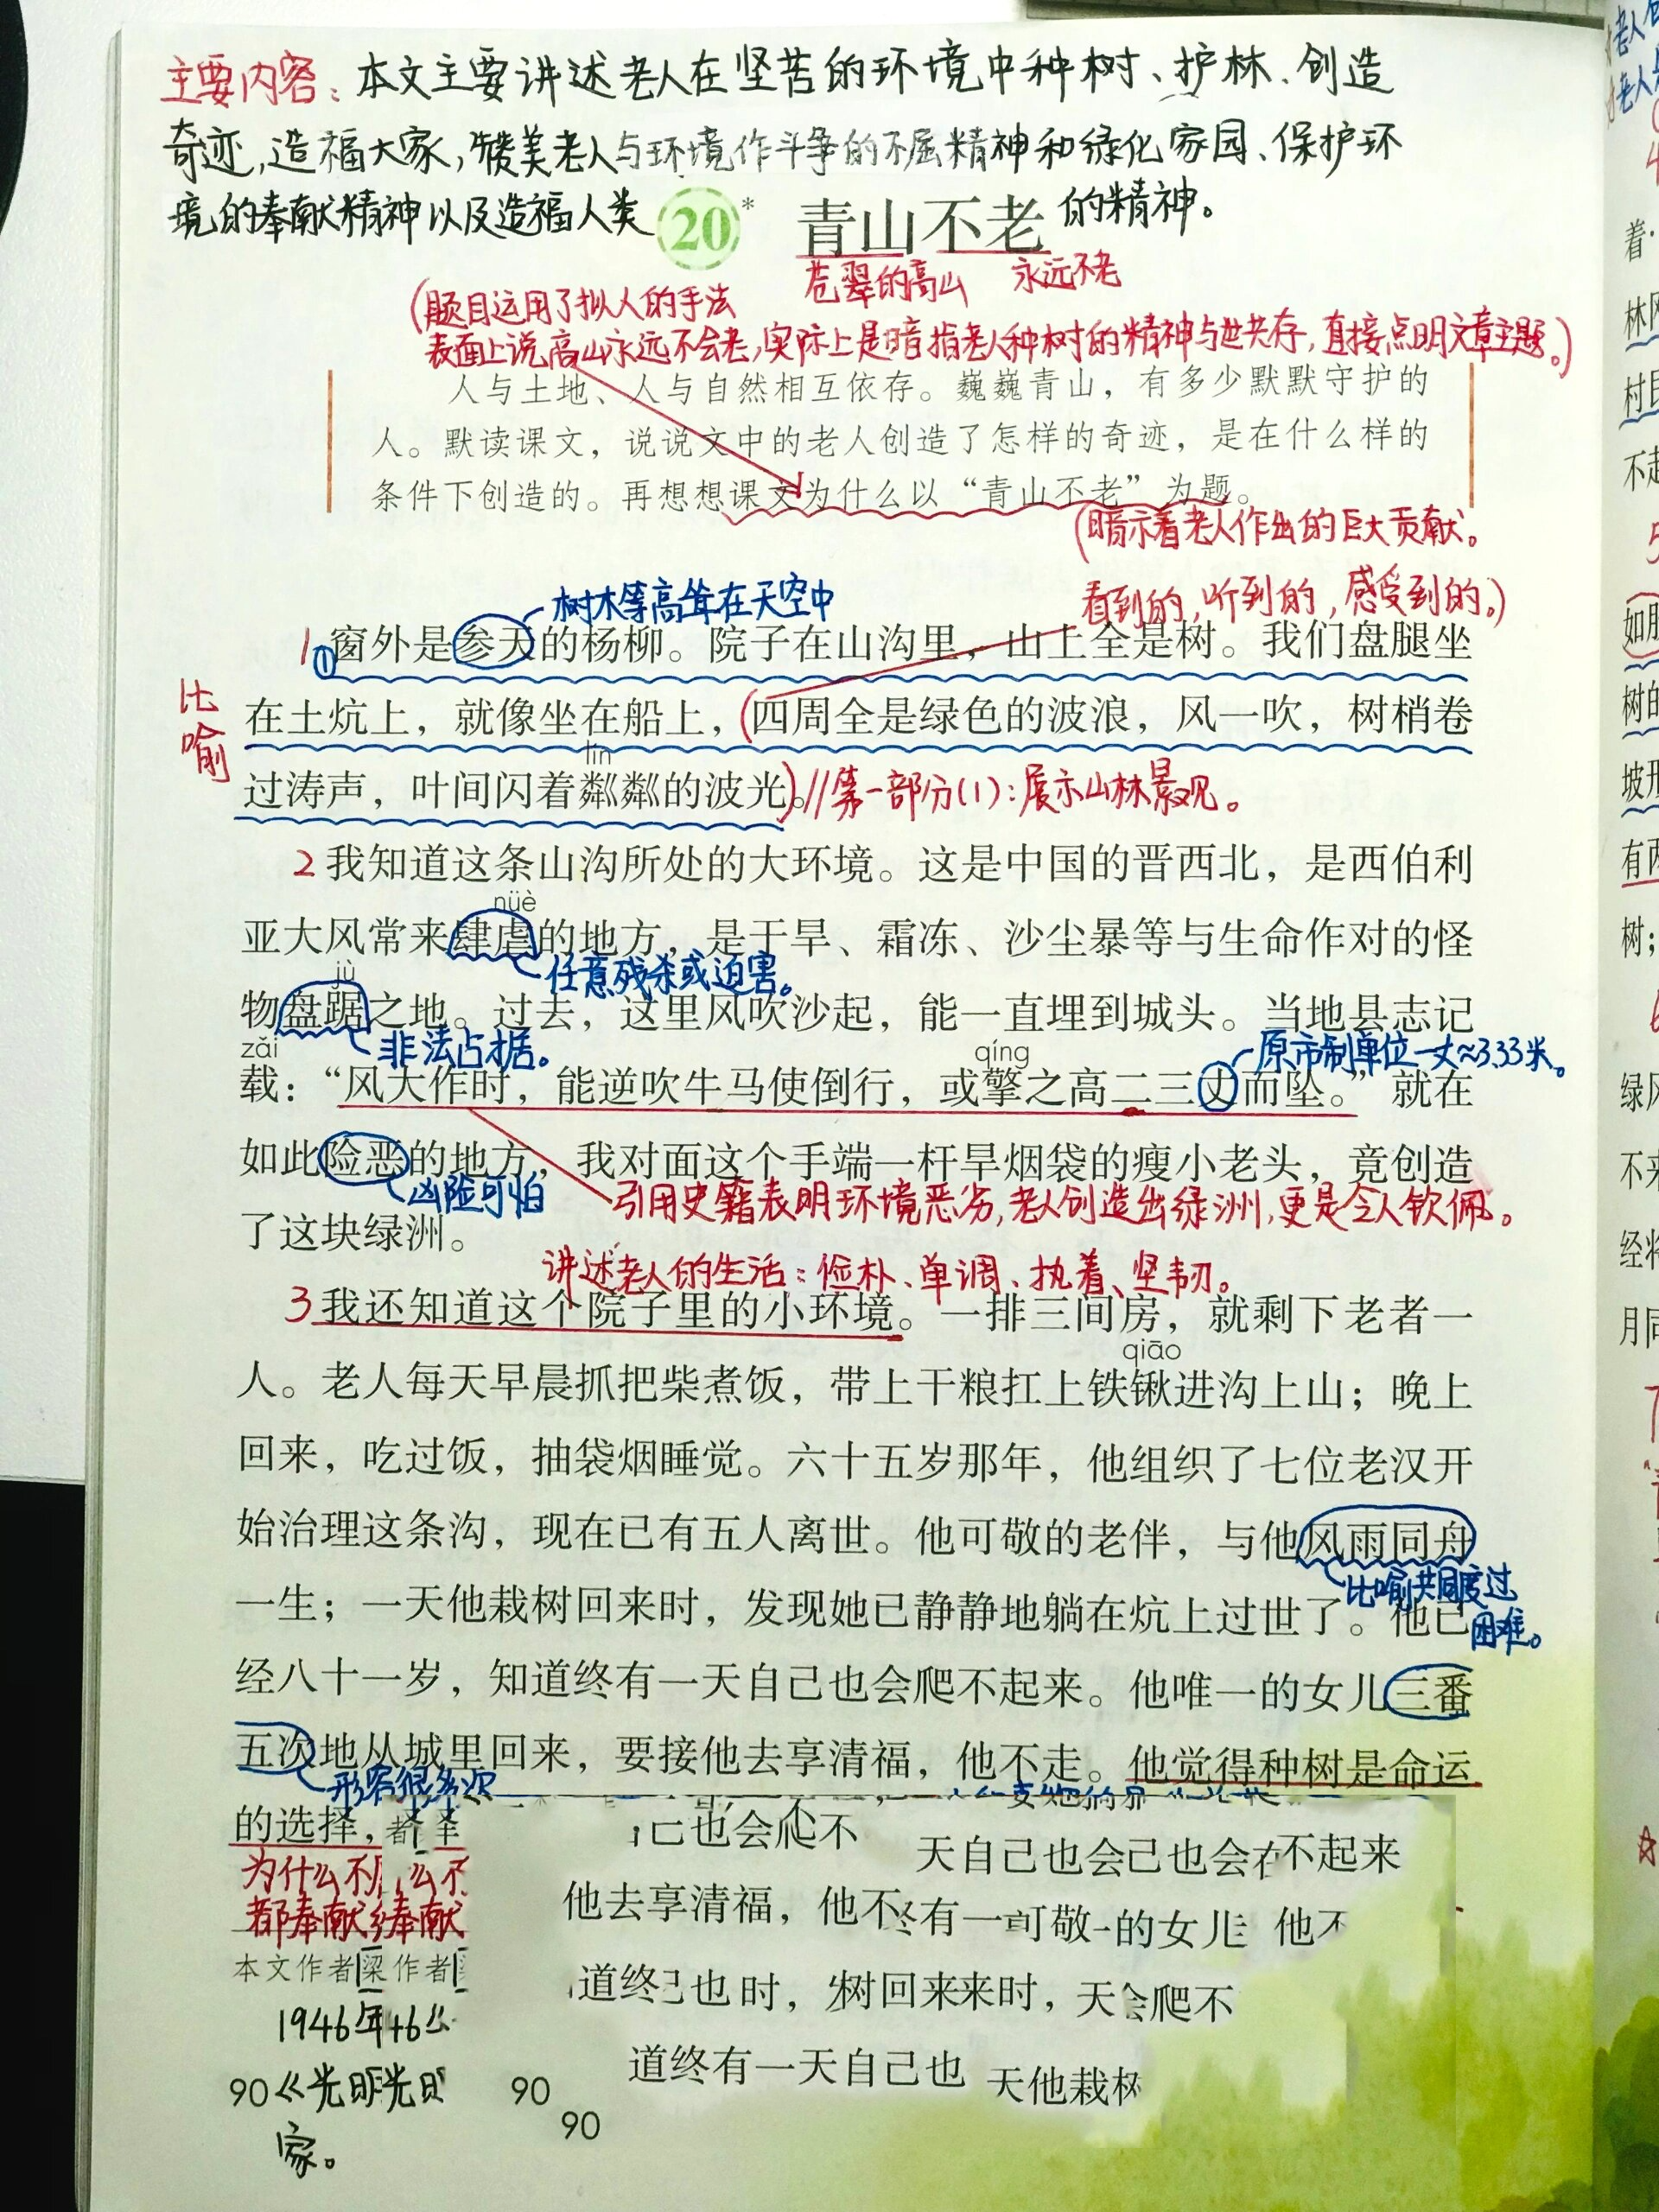 主要内容：本文主要讲述老人在坚苦的环境中种树、护林、创造
奇迹，造福大家，赞美老人与环境作斗争的不屈精神和绿化家园、保护环
境的奉献精神以及造福人类的精神。
20* 青山不老
苍翠的高山 永远不老
(题目运用了拟人的手法
表面上说高山永远不会老，实际上是暗指老人种树的精神与世共存，直接点明文章主题。)
人与土地、人与自然相互依存。巍巍青山，有多少默默守护的
人。默读课文，说说文中的老人创造了怎样的奇迹，是在什么样的
条件下创造的。再想想课文为什么以“青山不老”为题。
(暗示着老人作出的巨大贡献。
看到的，听到的，感受到的。)
树木等高耸在天空中
1①窗外是参天的杨柳。院子在山沟里，山上全是树。我们盘腿坐
比喻
在土炕上，就像坐在船上，(四周全是绿色的波浪，风一吹，树梢卷
lín
过涛声，叶间闪着粼粼的波光)。//第一部分(1)：展示山林景观。
2我知道这条山沟所处的大环境。这是中国的晋西北，是西伯利
nüè
亚大风常来肆虐的地方，是干旱、霜冻、沙尘暴等与生命作对的怪
任意残杀或迫害。
jù
物盘踞之地。过去，这里风吹沙起，能一直埋到城头。当地县志记
非法占据。
原市制单位一丈≈3.33米。
zǎi qíng
载：“风大作时，能逆吹牛马使倒行，或擎之高二三丈而坠。”就在
如此险恶的地方，我对面这个手端一杆旱烟袋的瘦小老头，竟创造
凶险可怕
引用史籍表明环境恶劣，老人创造出绿洲，更是令人钦佩。
了这块绿洲。
讲述老人的生活：俭朴、单调、执着、坚韧。
3我还知道这个院子里的小环境。一排三间房，就剩下老者一
qiāo
人。老人每天早晨抓把柴煮饭，带上干粮扛上铁锹进沟上山；晚上
回来，吃过饭，抽袋烟睡觉。六十五岁那年，他组织了七位老汉开
始治理这条沟，现在已有五人离世。他可敬的老伴，与他风雨同舟
比喻共同度过
困难。
一生；一天他栽树回来时，发现她已静静地躺在炕上过世了。他已
经八十一岁，知道终有一天自己也会爬不起来。他唯一的女儿三番
五次地从城里回来，要接他去享清福，他不走。他觉得种树是命运
形容很多次
的选择，者
己也会爬不
天自己也会己也会在不起来
为什么不 么不
都奉献 奉献
他去享清福，他不终有一可敬一的女儿 他不
本文作者梁作者
道终己也时，树回来来时，天会爬不
1946年46
道终有一天自己也 天他栽树
90《光明光明
90
90
家。